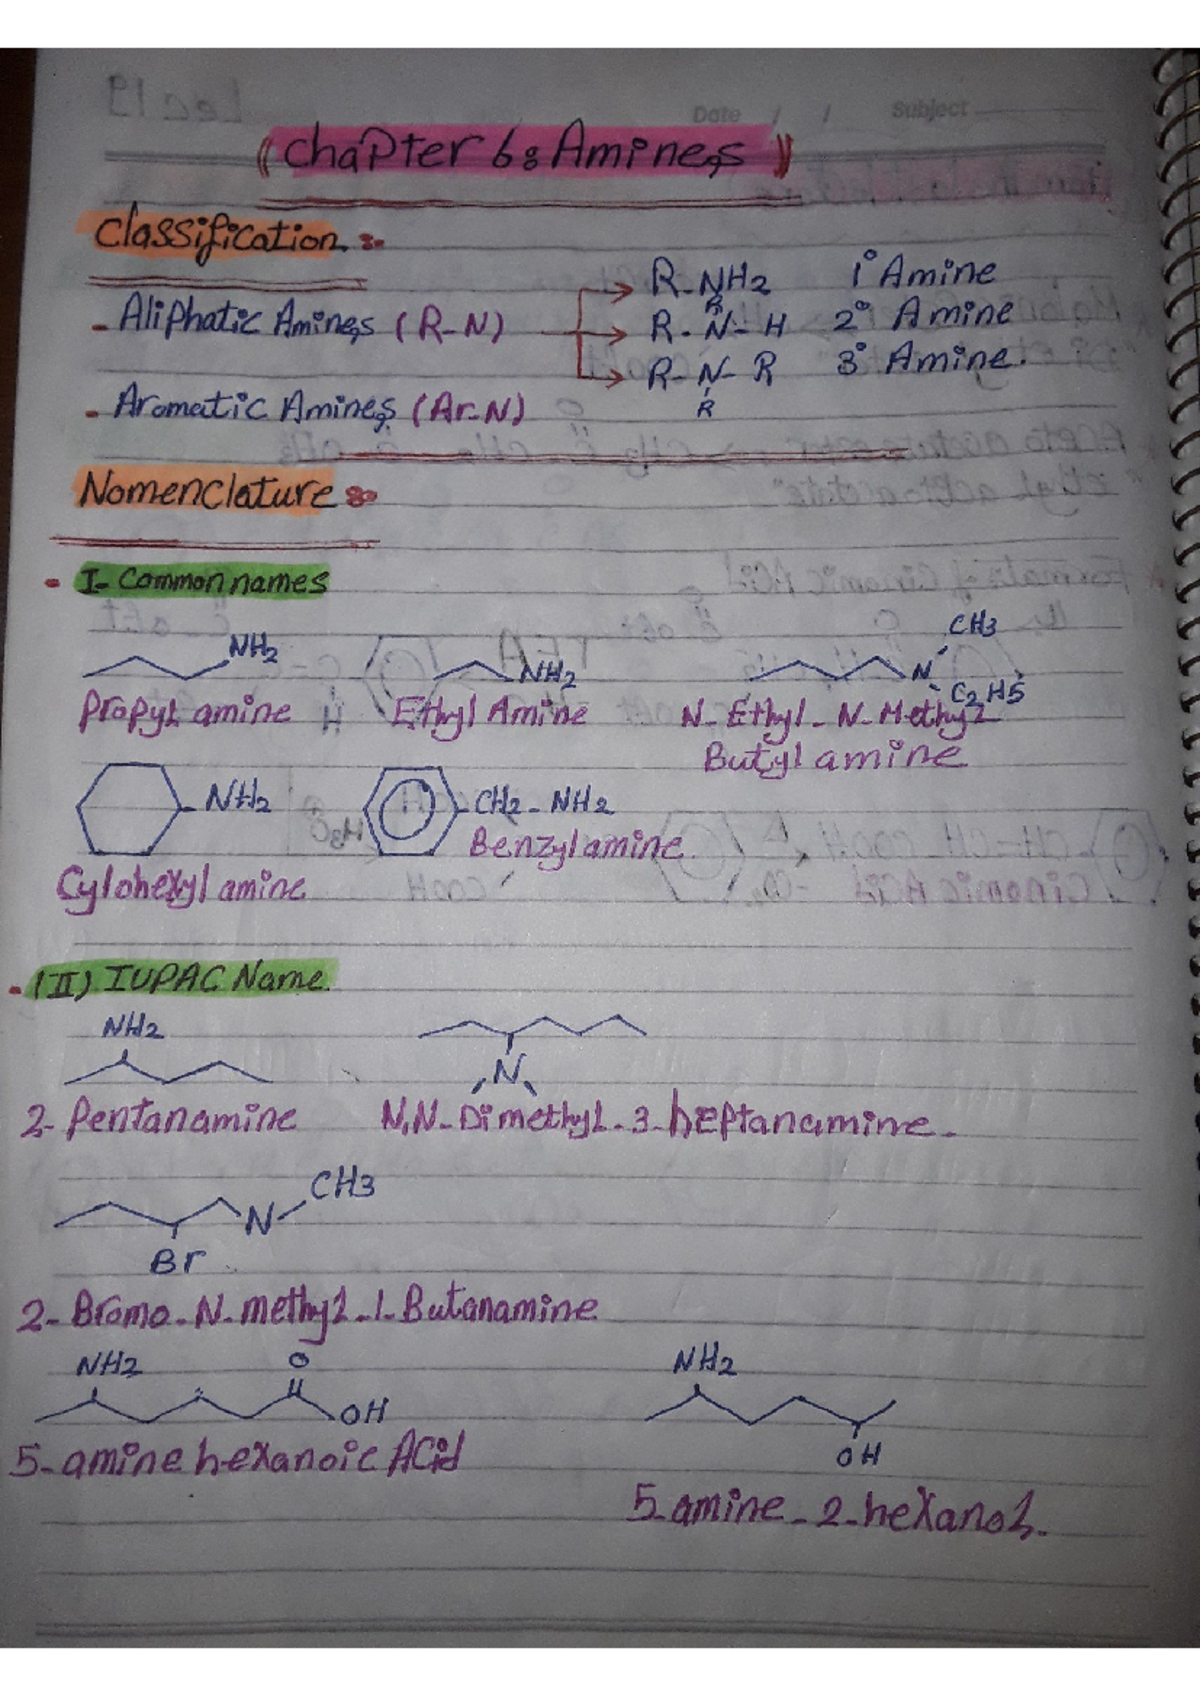 Date / / Subject
Lec 19
Chapter 6: Amines
Classification:-
- Aliphatic Amines (R-N)
R-NH2 1° Amine
R
R-N-H 2° Amine
R-N-R 3° Amine.
R
- Aromatic Amines (Ar-N)
Nomenclature:-
I- Common names
NH2
Propyl amine
NH2
Ethyl Amine
CH3
N
C2H5
N-Ethyl-N-Methyl
Butyl amine
NH2
Cylohexyl amine
CH2-NH2
Benzylamine
(II) IUPAC Name.
NH2
2-Pentanamine
N
N,N-Dimethyl-3-heptanamine.
CH3
N
Br
2-Bromo-N-methyl-1-Butanamine
NH2 O
OH
5-amine hexanoic Acid
NH2
OH
5-amine-2-hexanol.